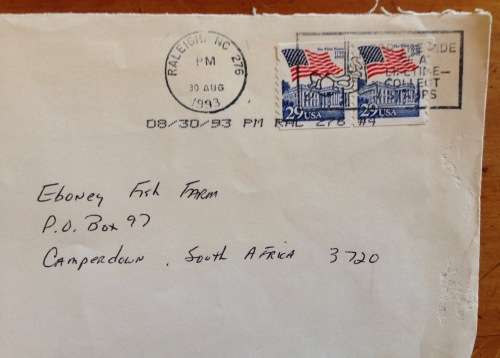 RALEIGH, NC 276
PM
30 AUG
1993
08/30/93 PM RAL 276 #9
29 USA
29 USA
IDE
A
COLLECT
Eboney Fish Farm
P.O. Box 97
Camperdown, South Africa 3720